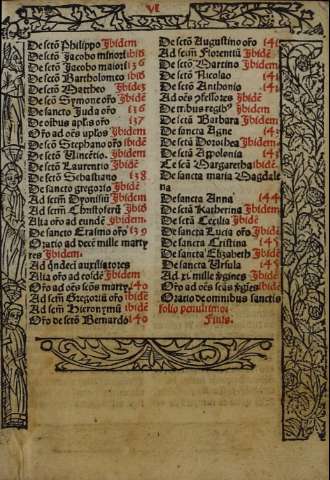 VI
De sctō Philippo Ibidem
De sctō Jacobo minori ibid
De sctō Jacobo maiori 136
De sctō Bartholomeo ibid
De sctō Mattheo Ibidez
De scō Symone orō Ibidē
De sancto Juda orō 136
De oibus aplis orō 136
Orō ad oēs aplos Ibidem
De scō Stephano orō ibidē
De sctō Vincētio. Ibidem
De sctō Laurentio Ibidē
De sctō Sebastiano 138
De sancto gregorio Ibidē
Ad sctm̄ Dyonisiū Ibidem
Ad sctm̄ Christoferū Ibid
Alia orō ad eundē Ibidem.
De sancto Erasmo orō 139
Oratio ad decē mille marty
res Ibidem.
Ad qndeci auxiliatores
Alia orō ad eosdē Ibidem
Orō ad oēs scōs marty. 140
Ad sctm̄ Gregoriū orō ibidē
Ad sctm̄ Hieronymū ibidē
Orō de sctō Bernardo 140
De sctō Augustino orō 141
Ad sctm̄ Florentiū Ibidē
De sctō Martino Ibidem
De sctō Nicolao 141
De sctō Anthonio 141
Ad oēs pfessores Ibidē
De tribus regib9 Ibidem
De sctā Barbara Ibidem
De sancta Agne 143
De sctā Dorothea Ibidem
De sctā Apolonia 143
De scā Margaretha ibidē.
De sancta maria Magdale
na
De sancta Anna 144
De sctā Katherina Ibidem
De sctā Cecilia Ibidē
De sancta Lucia orō Ibidē
De sancta Cristina 145
De sancta Elizabeth Ibidē
De sancta Ursula 145
Ad xi. mille vgines Ibidē
Orō ad oēs scās vgies Ibidē
Oratio de omnibus sanctis
folio penultimo.
Finis.